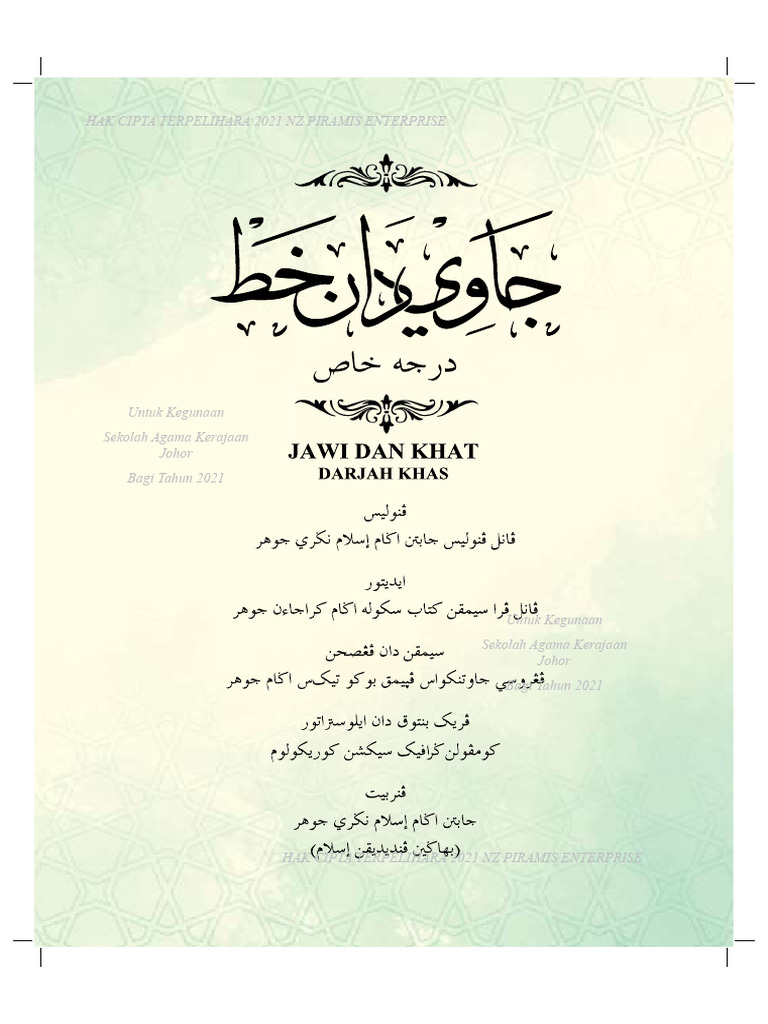 HAK CIPTA TERPELIHARA 2021 NZ PIRAMIS ENTERPRISE
جَاوِيْ دَان خَطْ
درجه خاص
Untuk Kegunaan
Sekolah Agama Kerajaan
Johor
Bagi Tahun 2021
JAWI DAN KHAT
DARJAH KHAS
ڤنوليس
ڤانل ڤنوليس جابتن اݢام إسلام نݢري جوهر
ايديتور
ڤانل ڤرا سيمقن کتاب سکوله اݢام کراجاءن جوهر
Untuk Kegunaan
Sekolah Agama Kerajaan
Johor
Bagi Tahun 2021
سيمقن دان ڤڠصحن
ڤڠروسي جاوتنکواس ڤپيمق بوکو تيکس اݢام جوهر
ڤريک بنتوق دان ايلوستراتور
کومڤولن ݢرافيک سيکشن کوريکولوم
ڤنربيت
جابتن اݢام إسلام نݢري جوهر
(بهاݢين ڤنديديقن إسلام)
HAK CIPTA TERPELIHARA 2021 NZ PIRAMIS ENTERPRISE